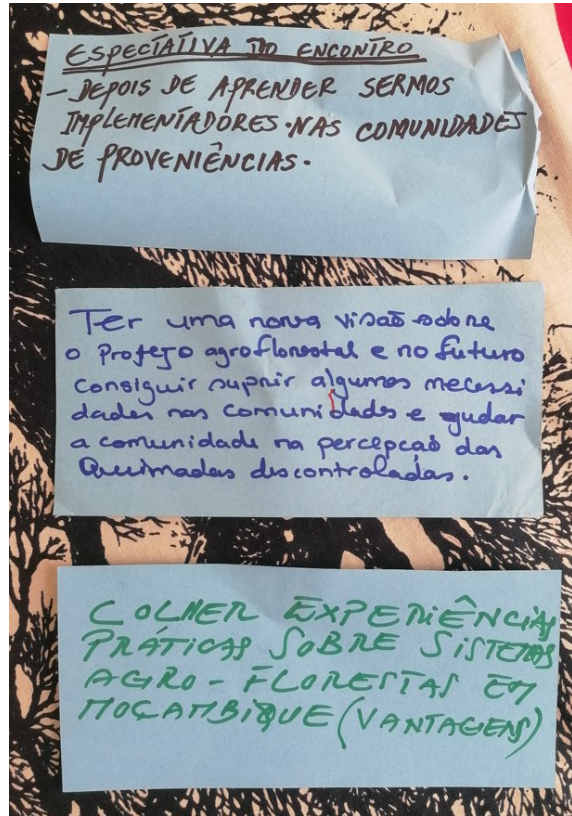 ESPECTATIVA DO ENCONTRO
- DEPOIS DE APRENDER SERMOS
IMPLEMENTADORES NAS COMUNIDADES
DE PROVENIÊNCIAS.
Ter uma nova visão sobre
o Projeto agroflorestal e no futuro
consiguir suprir algumas necessi
dades nas comunidades e ajudar
a comunidade na percepção das
Queimadas discontroladas.
COLHER EXPERIÊNCIAS
PRÁTICAS SOBRE SISTEMAS
AGRO-FLORESTAS EM
MOÇAMBIQUE (VANTAGENS)